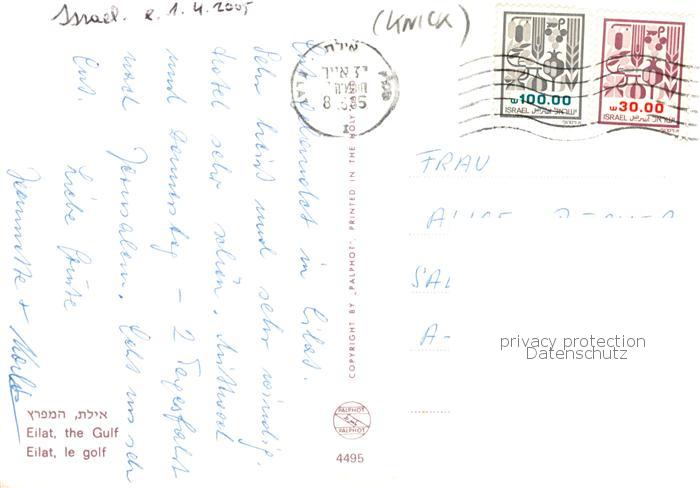 Israel. 1.4.2005
(KNICK)
אילת
100.00
ISRAEL ישראל
30.00
ISRAEL ישראל
FRAU
privacy protection
Datenschutz
in Eilat.
Sehr heiß und sehr windig.
Hotel sehr schön. Mittwoch
und Donnerstag – 2 Tagesfahrt
nach Jerusalem. Geht uns sehr
Gut.
Liebe Grüße
Jeannette +
COPYRIGHT BY „PALPHOT", PRINTED IN THE HOLY LAND
PALPHOT
PALPHOT
4495
אילת, המפרץ
Eilat, the Gulf
Eilat, le golf